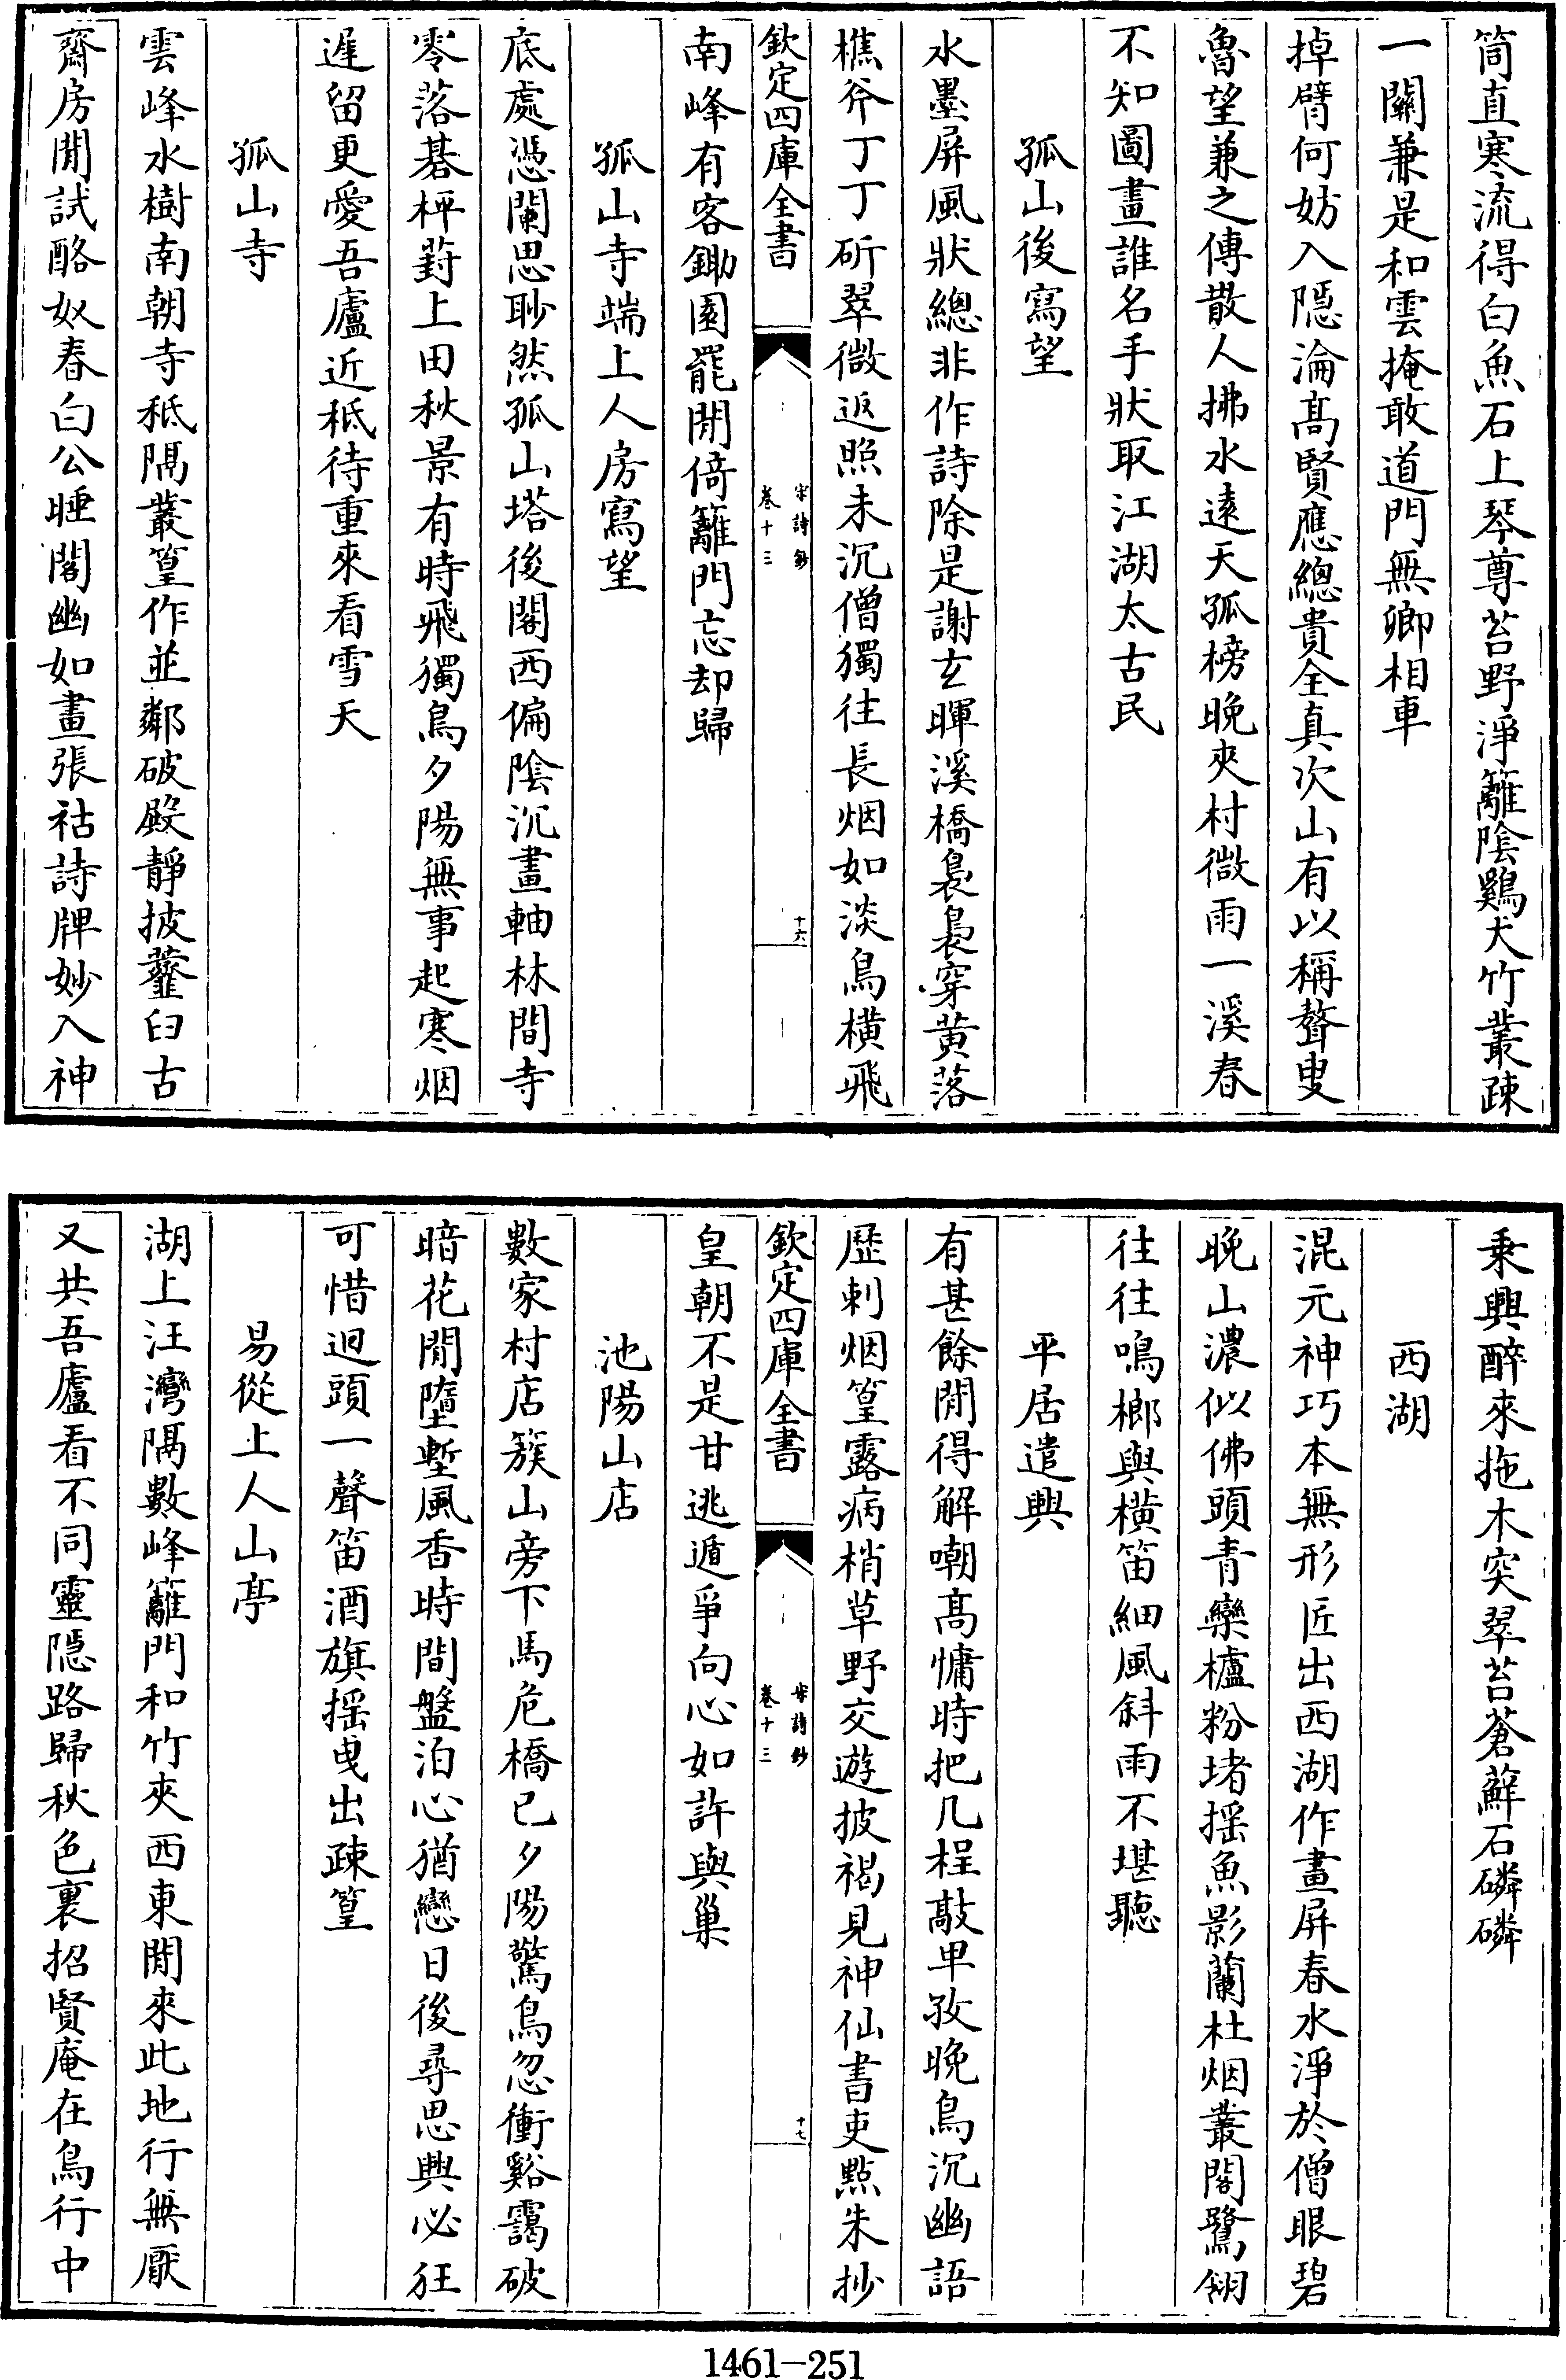 筒直寒流得白魚石上琴尊苔野淨籬陰鷄犬竹叢疎
一關兼是和雲掩敢道門無卿相車
掉臂何妨入隠淪髙賢應總貴全真次山有以稱聱叟
魯望兼之傳散人拂水逺天孤榜晚夾村微雨一溪春
不知圖畫誰名手狀取江湖太古民
孤山後寫望
水墨屏風狀總非作詩除是謝玄暉溪橋裊裊穿黄落
樵斧丁丁斫翠微返照未沉僧獨往長烟如淡鳥横飛
欽定四庫全書
宋詩鈔
卷十三
十六
南峰有客鋤園罷閒倚籬門忘却歸
孤山寺端上人房寫望
底處憑闌思眇然孤山塔後閣西偏陰沉畫軸林間寺
零落碁枰葑上田秋景有時飛獨鳥夕陽無事起寒烟
遲留更愛吾廬近秪待重來看雪天
孤山寺
雲峰水樹南朝寺秪隔叢篁作並鄰破殿靜披虀臼古
齋房閒試酪奴春白公睡閣幽如畫張祜詩牌妙入神
乘興醉來拖木突翠苔蒼蘚石磷磷
西湖
混元神巧本無形匠出西湖作畫屏春水淨於僧眼碧
晚山濃似佛頭青欒櫨粉堵摇魚影蘭杜烟叢閣鷺翎
往往鳴榔與横笛細風斜雨不堪聽
平居遣興
有甚餘閒得解嘲髙慵時把几桯敲卑孜晚鳥沉幽語
歷刺烟篁露病梢草野交遊披褐見神仙書吏點朱抄
欽定四庫全書
宋詩鈔
卷十三
十七
皇朝不是甘逃遁爭向心如許與巢
池陽山店
數家村店簇山旁下馬危橋已夕陽驚鳥忽衝谿靄破
暗花閒墮塹風香時間盤泊心猶戀日後尋思興必狂
可惜迴頭一聲笛酒旗摇曵出疎篁
易從上人山亭
湖上汪灣隔數峰籬門和竹夾西東閒來此地行無厭
又共吾廬看不同靈隠路歸秋色裏招賢庵在鳥行中
1461-251